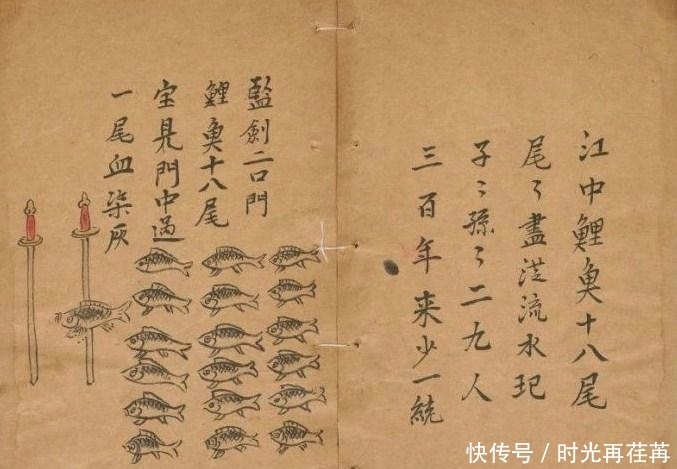 江中鯉魚十八尾
尾〻盡從流水
子〻孫〻二九人
三百年来少一統
劍二口門
鯉魚十八尾
宝見門中過
一尾血染灰
快传号／时光再荏苒